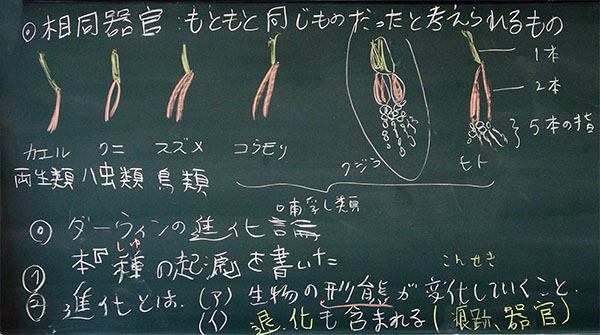 ◎相同器官:もともと同じものだったと考えられるもの
1本
2本
5本の指
カエル ワニ スズメ コウモリ クジラ ヒト
両生類 ハ虫類 鳥類
哺乳類
◎ ダーウィンの進化論
しゅ
① 本『種の起源』を書いた
② 進化とは、(ア) 生物の形態が変化していくこと.
こんせき
(イ) 退化も含まれる(痕跡器官)